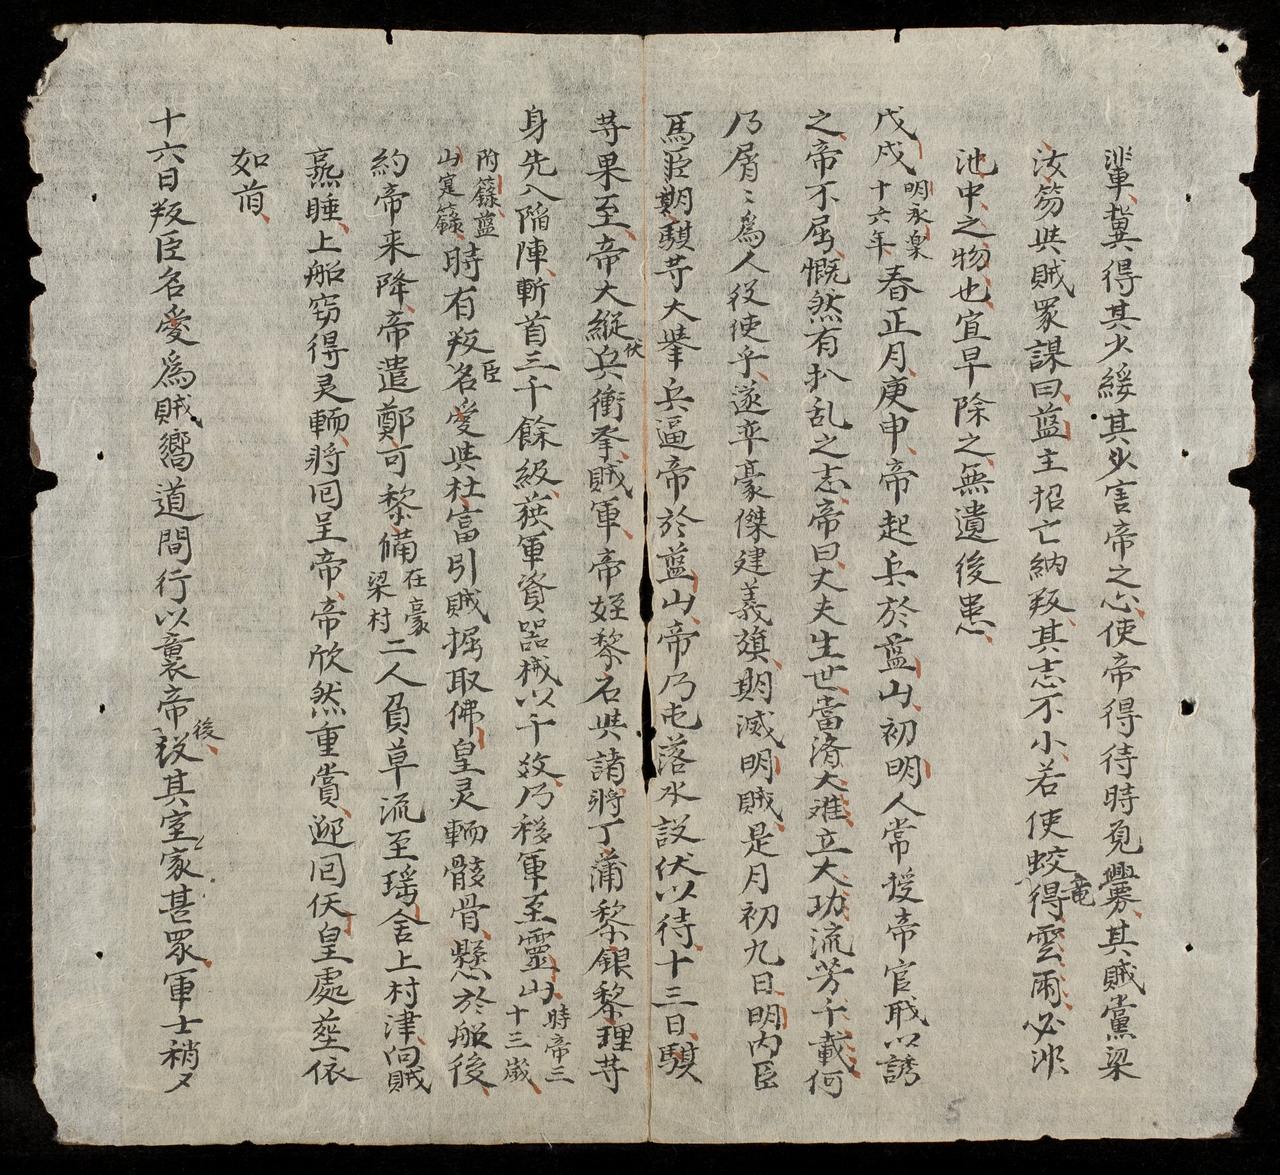 輩、冀得其少綏其必害帝之心、使帝得待時覓釁、其賊黨梁
汝笏共賊眾謀曰、藍主招亡納叛、其志不小、若使蛟竜得雲雨、必非
池中之物也、宜早除之、無遺後患、
戊戌明永楽十六年春正月、庚申、帝起兵於藍山、初明人常授帝官戢以誘
之、帝不屈、慨然有扒乱之志、帝曰、丈夫生世、當済大难、立大功、流芳千載、何
乃屑〻為人役使乎、遂卒豪傑建義旗、期滅明賊、是月初九日、明內臣
馬臣期騏䒭大擧兵逼帝於藍山、帝乃屯落水設伏以待、十三日騏
䒭果至、帝大縱伏兵衝夆賊軍、帝姪黎石共諸將丁蒲黎銀黎理䒭
身先入陷陣、斬首三千餘級、获軍資器械以千效、乃移軍至靈山、時帝三十三歲
附籙藍山寔籙、時有叛臣名愛共杜富引賊掘取佛皇灵輀骸骨、懸於船後、
約帝来降、帝遣鄭可黎備在豪梁村二人負草流至瑶舍上村津、向賊
熹睡、上船窃得灵輀、將囘呈帝、帝欣然重賞、迎囘仸皇處塟依
如前、
十六日叛臣名愛為賊嚮道、間行以襲帝後、殺其室家甚眾、軍士稍夕
5